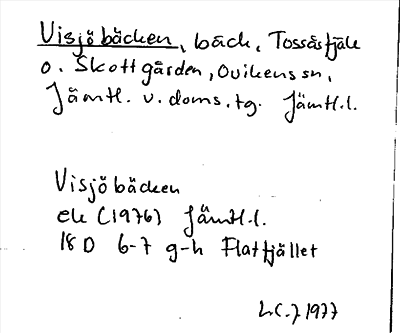 Visjöbäcken, bäck, Tossåsfjäll
o. Skottgården, Ovikens sn,
Jämtl. v. doms. tg. Jämtl.l.
Visjöbäcken
ek (1976) Jämtl.l.
18 D 6-7 g-h Flatfjället
1977